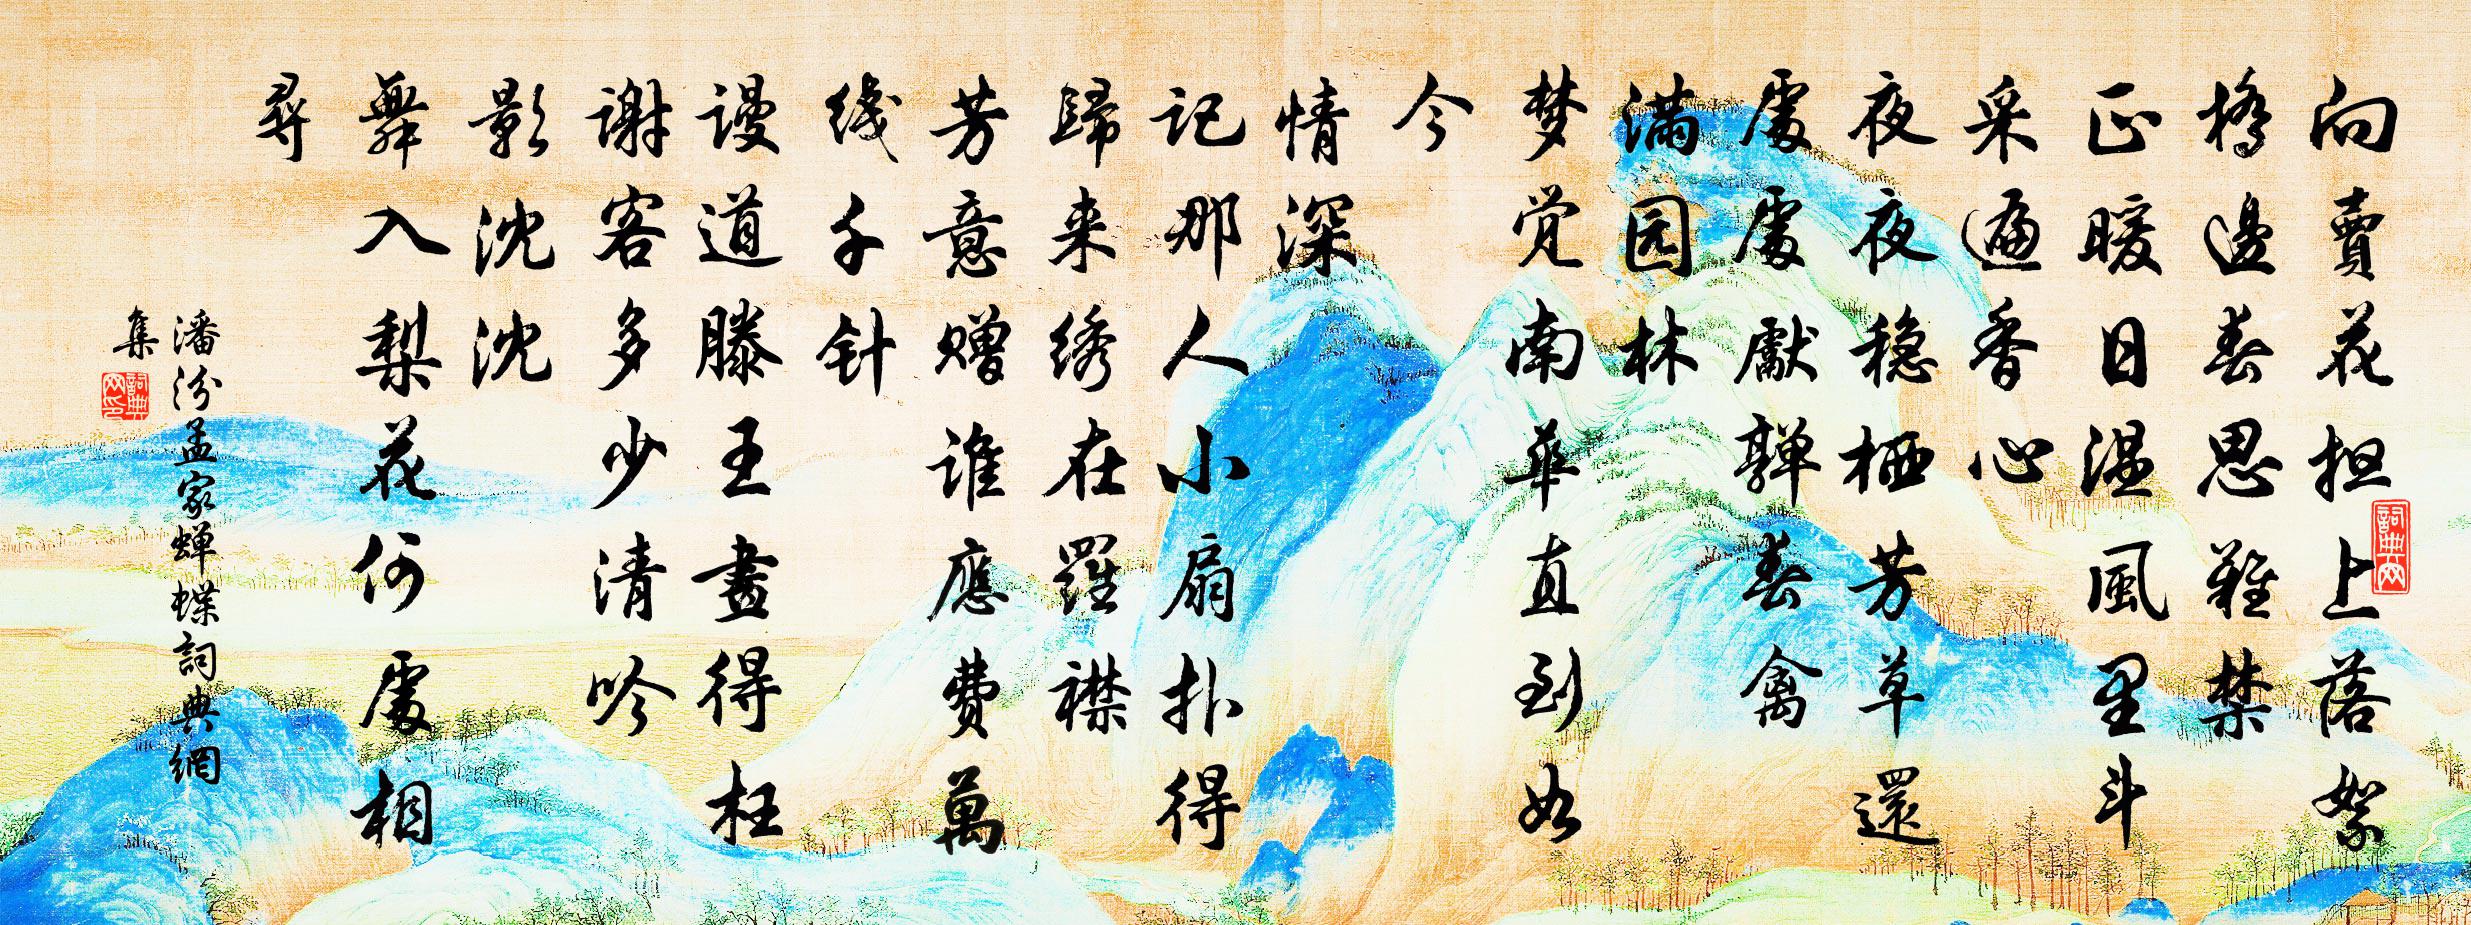 向賣花担上落絮
橋邊春思難禁
正暖日温風里斗
采遍香心
夜夜稳栖芳草還
處處獻亸春禽
滿园林
梦觉南華直到如
今
情深
记那人小扇扑得
歸来绣在羅襟
芳意赠谁應费萬
线千针
谩道滕王畫得枉
谢客多少清吟
影沈沈
舞入梨花何處相
尋
潘汾孟家蝉蝶詞典網
集
詞典网
詞典网印